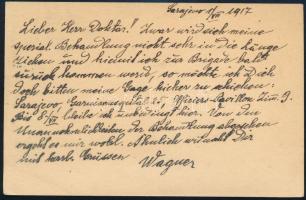 Sarajevo 1/VII 1917
Lieber Herr Doktor! Zwar wird sich meine
spezial. Behandlung nicht sehr in die Länge
ziehen und hiemit ich zur Brigade bald
zurück kommen werde, so möchte ich Dich
doch bitten meine Gage hieher zu schicken:
Sarajevo, Garnisonsspital, Offiziers-Pavillon Zim. 9.
Bis /VII bleibe ich unbedingt hier. Von den
Unannehmlichkeiten der Behandlung abgesehen
ergeht es mir wohl. Ähnlich wünscht Dir
mit herzl. Grüssen
Wagner